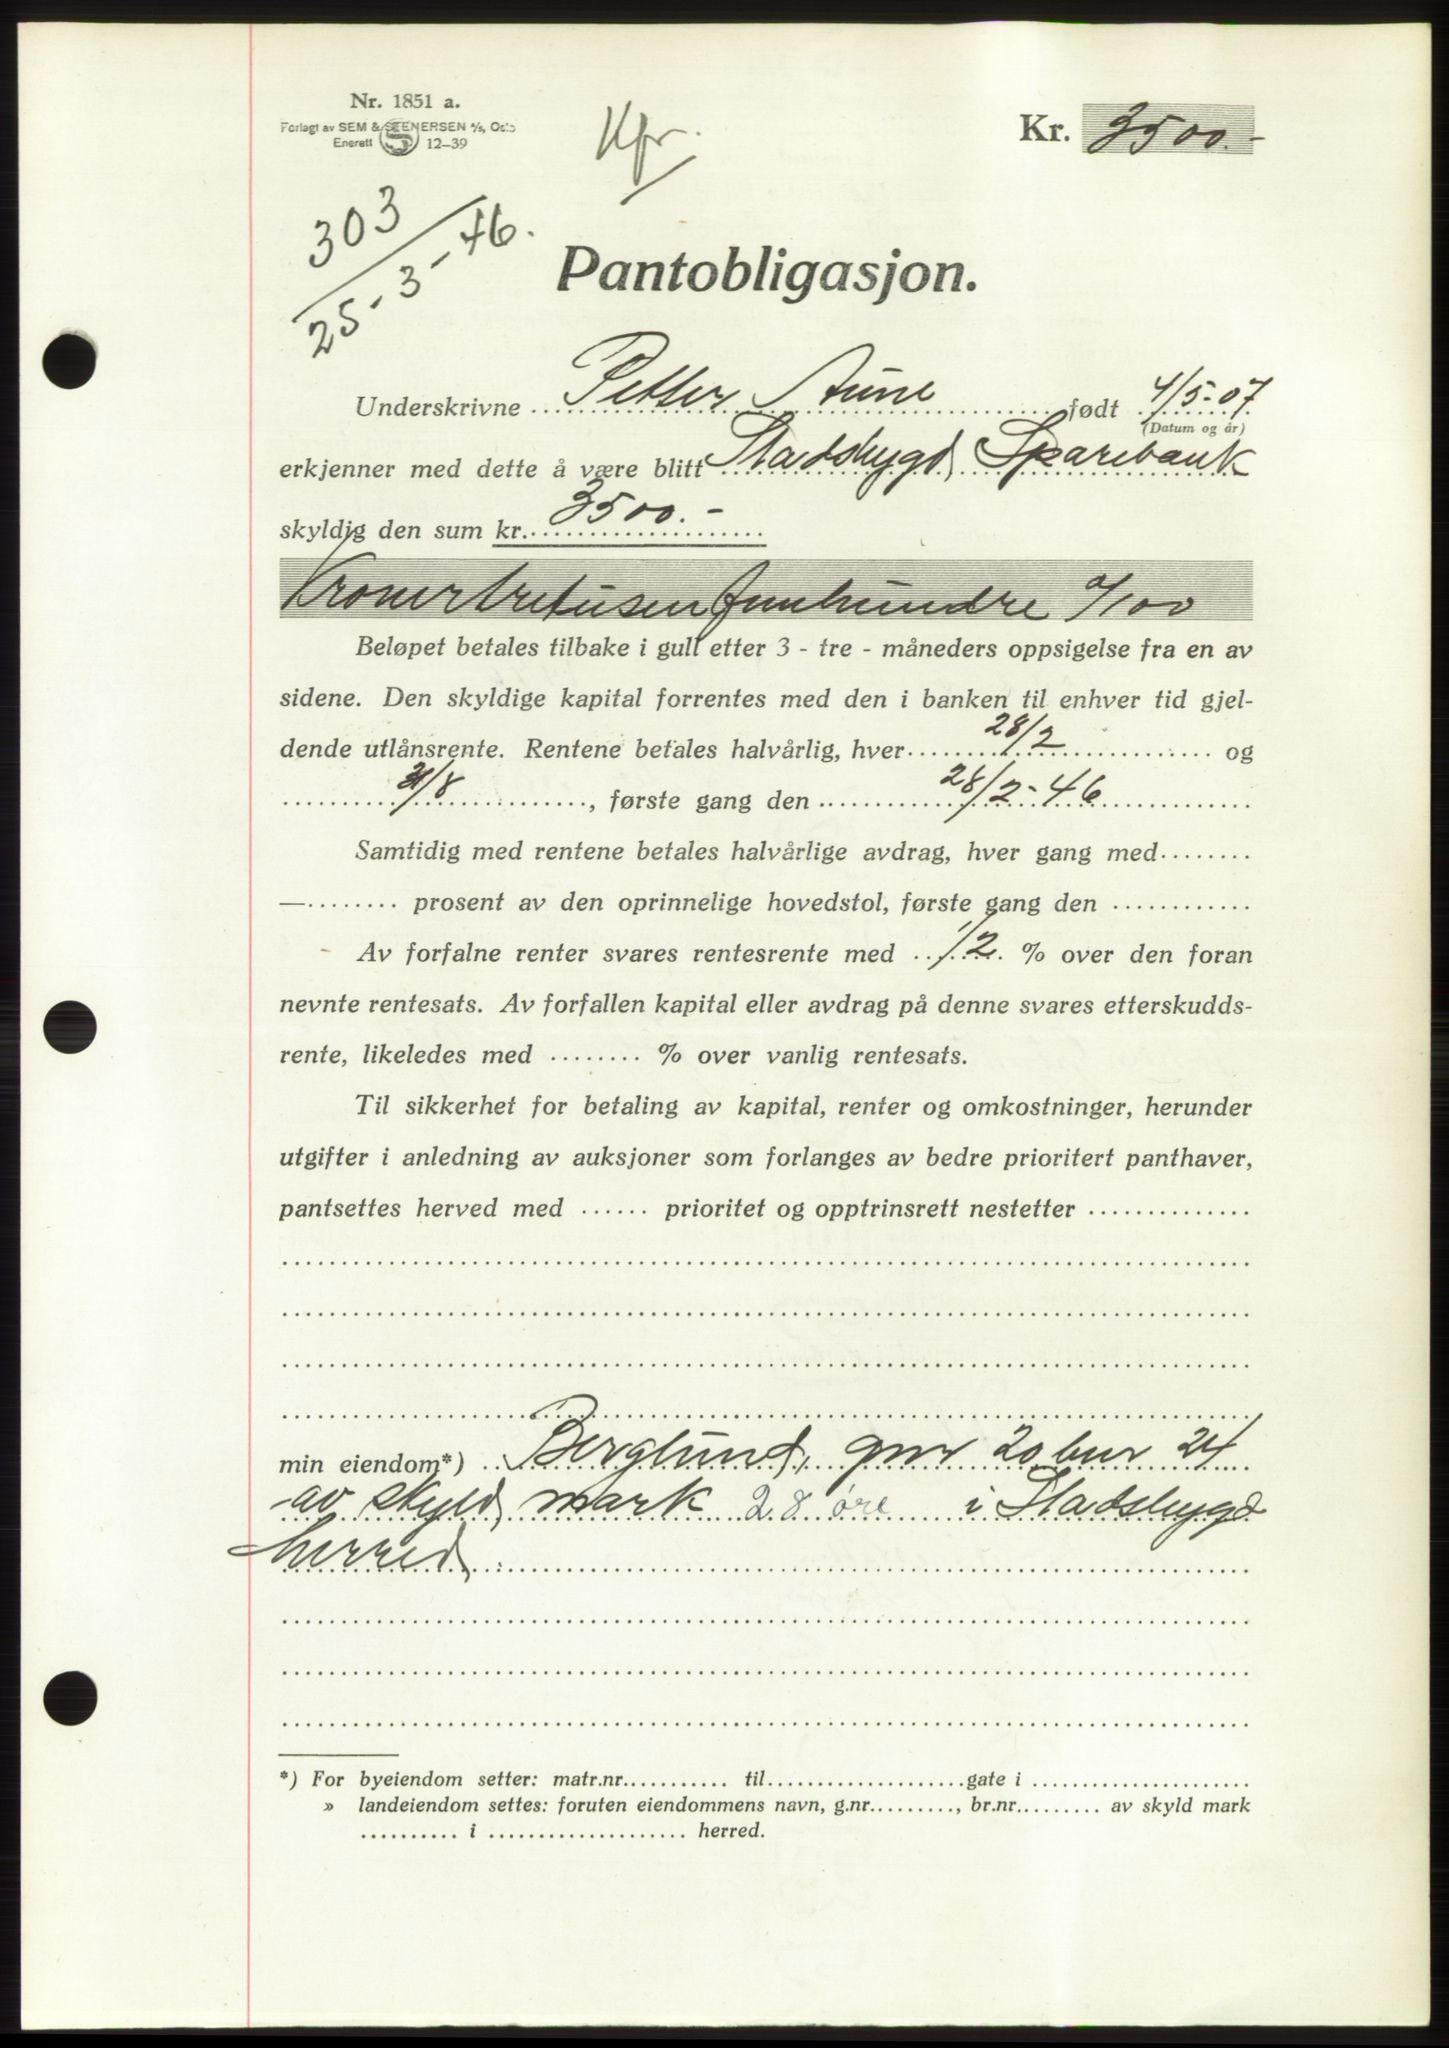 Nr. 1851 a.
Forlagt av SEM & STENERSEN A/S, Oslo
Enerett 12-39
Kfr.
Kr. 3500.-
303
25-3-46.
Pantobligasjon.
Underskrivne Petter Aune født 4/5-07
(Datum og år)
erkjenner med dette å være blitt Stadsbygd Sparebank
skyldig den sum kr. 3500.-
Kroner tretusenfemhundre 0/100
Beløpet betales tilbake i gull etter 3 - tre - måneders oppsigelse fra en av
sidene. Den skyldige kapital forrentes med den i banken til enhver tid gjel-
dende utlånsrente. Rentene betales halvårlig, hver 28/2 og
31/8, første gang den 28/2-46
Samtidig med rentene betales halvårlige avdrag, hver gang med
— prosent av den oprinnelige hovedstol, første gang den
Av forfalne renter svares rentesrente med 1/2 % over den foran
nevnte rentesats. Av forfallen kapital eller avdrag på denne svares etterskudds-
rente, likeledes med % over vanlig rentesats.
Til sikkerhet for betaling av kapital, renter og omkostninger, herunder
utgifter i anledning av auksjoner som forlanges av bedre prioritert panthaver,
pantsettes herved med prioritet og opptrinsrett nestetter
min eiendom*) Berglund, gnr 20 bnr 24
av skyld mark 28 øre i Stadsbygd
herred
*) For byeiendom setter: matr.nr. til gate i
» landeiendom settes: foruten eiendommens navn, g.nr., br.nr. av skyld mark
i herred.